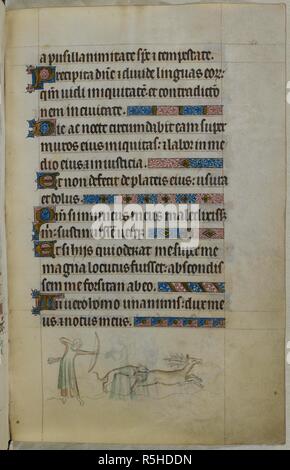 a pusillanimitate sps et tempestate.
Precipita dne et diuide linguas eor:
qm uidi iniquitatem et contradictio
nem in ciuitate.
Die ac nocte circumdabit eam super
muros eius iniquitas: et labor in me
dio eius et iniusticia.
Et non defecit de plateis eius: usura
et dolus.
Qm si inimicus meus maledixiss
m: sustin
Et si hijs qui oderat me super me
magna locutus fuisset: abscondis
sem me forsitan ab eo.
Tu uero homo unanimis: dux me
us et notus meus.
alamy
www.alamy.com - R5HDDN